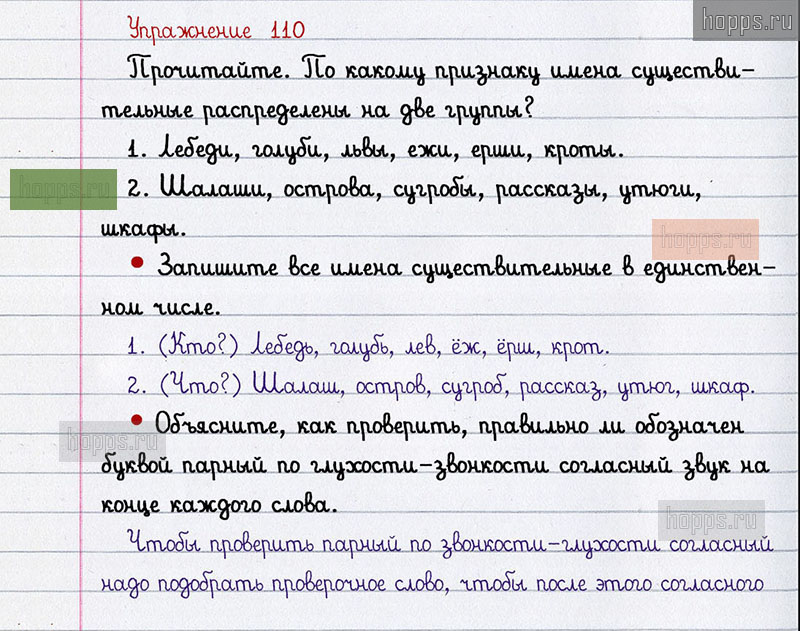 Упражнение 110
hopps.ru
Прочитайте. По какому признаку имена существи-
тельные распределены на две группы?
1. Лебеди, голуби, львы, ежи, ерши, кроты.
hopps.ru
2. Шалаши, острова, сугробы, рассказы, утюги,
шкафы.
hopps.ru
• Запишите все имена существительные в единствен-
ном числе.
1. (Кто?) Лебедь, голубь, лев, ёж, ёрш, крот.
2. (Что?) Шалаш, остров, сугроб, рассказ, утюг, шкаф.
• Объясните, как проверить, правильно ли обозначен
hopps.ru
буквой парный по глухости-звонкости согласный звук на
конце каждого слова.
hopps.ru
Чтобы проверить парный по звонкости-глухости согласный
надо подобрать проверочное слово, чтобы после этого согласного